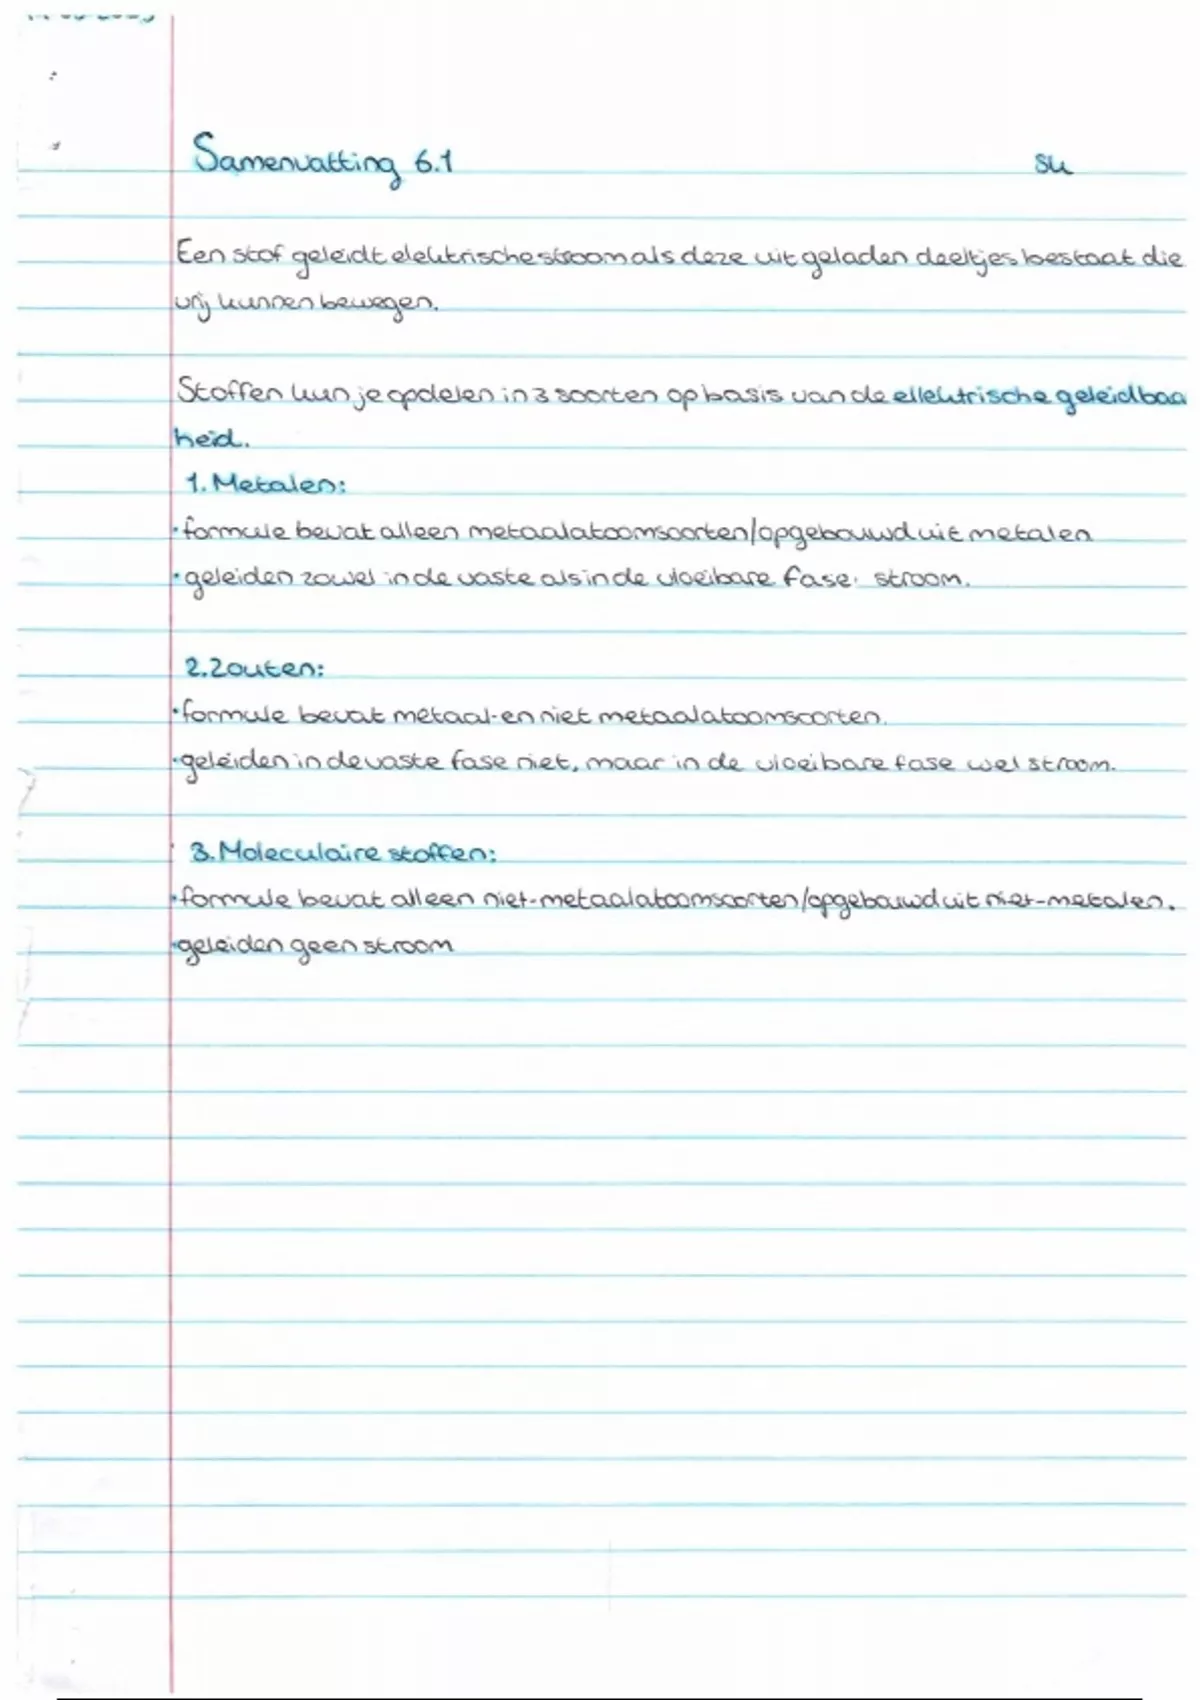 Samenvatting 6.1 sk
Een stof geleidt elektrische stroom als deze uit geladen deeltjes bestaat die
vrij kunnen bewegen.
Stoffen kun je opdelen in 3 soorten op basis van de ellektrische geleidbaa
heid.
1. Metalen:
• formule bevat alleen metaalatoomsoorten/opgebouwd uit metalen
• geleiden zowel in de vaste als in de vloeibare fase stroom.
2. Zouten:
• formule bevat metaal- en niet metaalatoomsoorten.
• geleiden in de vaste fase niet, maar in de vloeibare fase wel stroom.
3. Moleculaire stoffen:
• formule bevat alleen niet-metaalatoomsoorten/opgebouwd uit niet-metalen.
• geleiden geen stroom